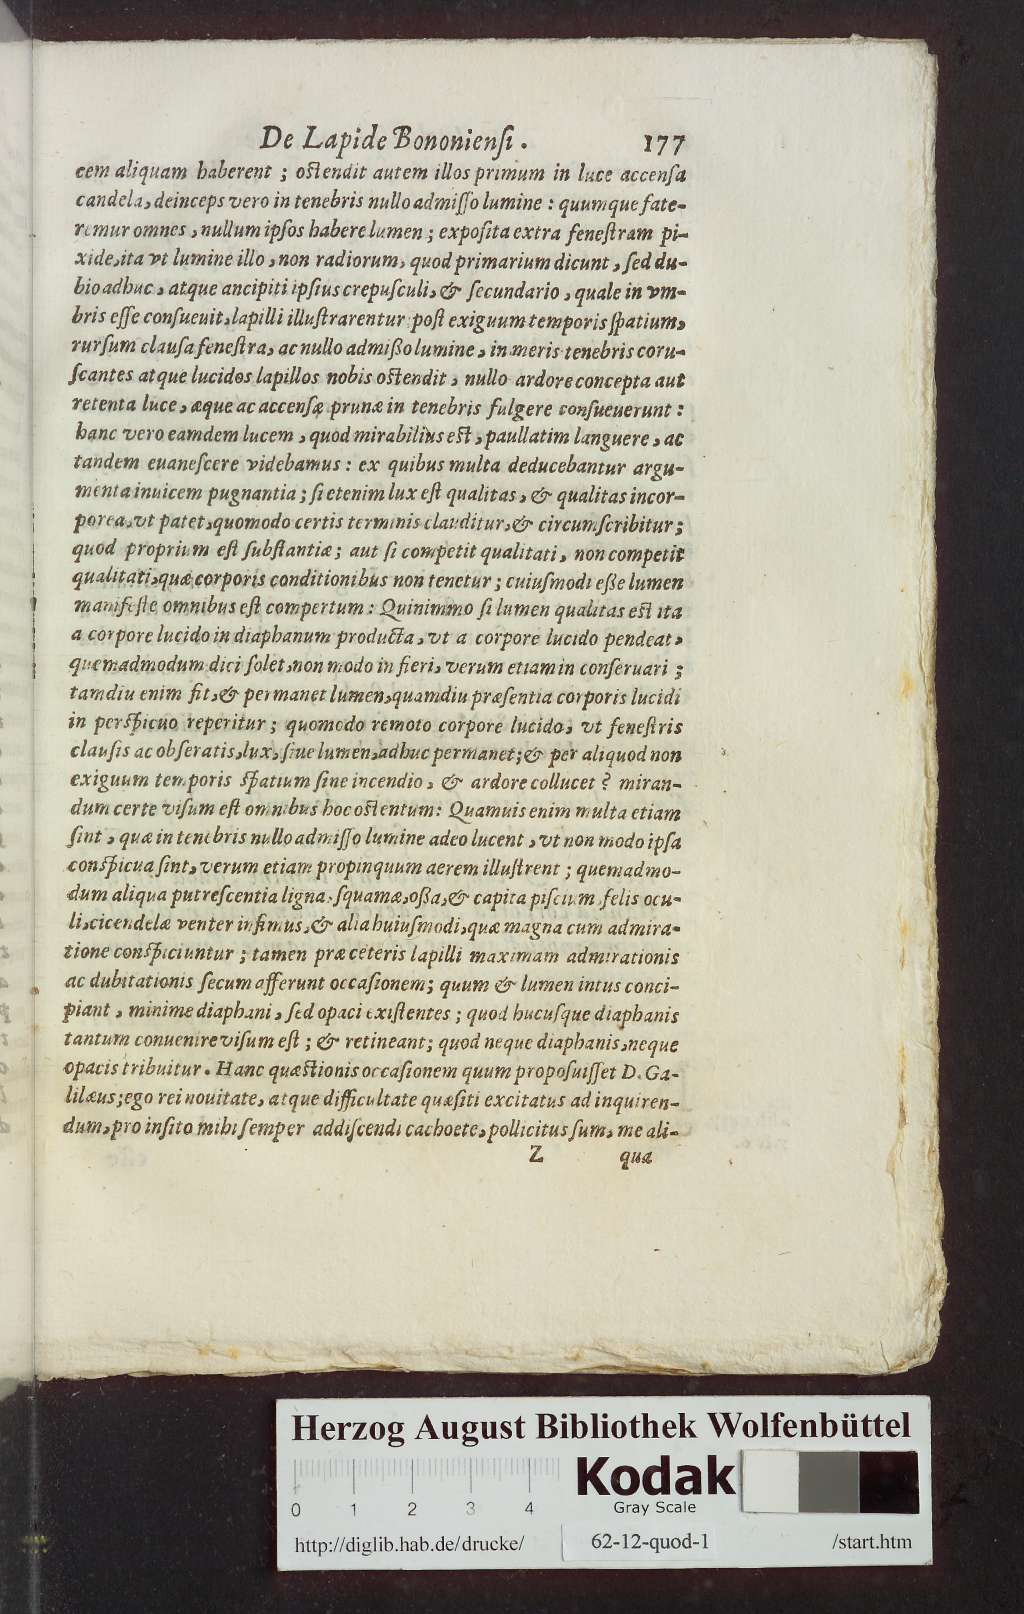 De Lapide Bononiensi. 177
cem aliquam haberent ; ostendit autem illos primum in luce accensa
candela, deinceps vero in tenebris nullo admisso lumine : quumque fate-
remur omnes, nullum ipsos habere lumen ; exposita extra fenestram pi-
xide, ita vt lumine illo, non radiorum, quod primarium dicunt, sed du-
bio adhuc, atque ancipiti ipsius crepusculi, & secundario, quale in vm-
bris esse consueuit, lapilli illustrarentur post exiguum temporis spatium,
rursum clausa fenestra, ac nullo admisso lumine, in meris tenebris coru-
scantes atque lucidos lapillos nobis ostendit, nullo ardore concepta aut
retenta luce, æque ac accensæ prunæ in tenebris fulgere consueuerunt :
hanc vero eamdem lucem, quod mirabilius est, paullatim languere, ac
tandem euanescere videbamus : ex quibus multa deducebantur argu-
menta inuicem pugnantia ; si etenim lux est qualitas, & qualitas incor-
porea, vt patet, quomodo certis terminis clauditur, & circumscribitur ;
quod proprium est substantiæ ; aut si competit qualitati, non competit
qualitati, quæ corporis conditionibus non tenetur ; cuiusmodi esse lumen
manifeste omnibus est compertum : Quinimmo si lumen qualitas est ita
a corpore lucido in diaphanum producta, vt a corpore lucido pendeat,
quemadmodum dici solet, non modo in fieri, verum etiam in conseruari ;
tamdiu enim fit, & permanet lumen, quamdiu præsentia corporis lucidi
in perspicuo reperitur ; quomodo remoto corpore lucido, vt fenestris
clausis ac obseratis, lux, siue lumen, adhuc permanet ; & per aliquod non
exiguum temporis spatium sine incendio, & ardore collucet ? miran-
dum certe visum est omnibus hoc ostentum : Quamuis enim multa etiam
sint, quæ in tenebris nullo admisso lumine adeo lucent, vt non modo ipsa
conspicua sint, verum etiam propinquum aerem illustrent ; quemadmo-
dum aliqua putrescentia ligna, squamæ, ossa, & capita piscium, felis ocu-
li, cicendelæ venter infimus, & alia huiusmodi, quæ magna cum admira-
tione conspiciuntur ; tamen præ ceteris lapilli maximam admirationis
ac dubitationis secum afferunt occasionem ; quum & lumen intus conci-
piant, minime diaphani, sed opaci existentes ; quod hucusque diaphanis
tantum conuenire visum est ; & retineant ; quod neque diaphanis, neque
opacis tribuitur. Hanc quæstionis occasionem quum proposuisset D. Ga-
lilæus ; ego rei nouitate, atque difficultate quæsiti excitatus ad inquiren-
dum, pro insito mihi semper addiscendi cachoete, pollicitus sum, me ali-
Z qua
Herzog August Bibliothek Wolfenbüttel
0 1 2 3 4
Kodak
Gray Scale
http://diglib.hab.de/drucke/ 62-12-quod-1 /start.htm